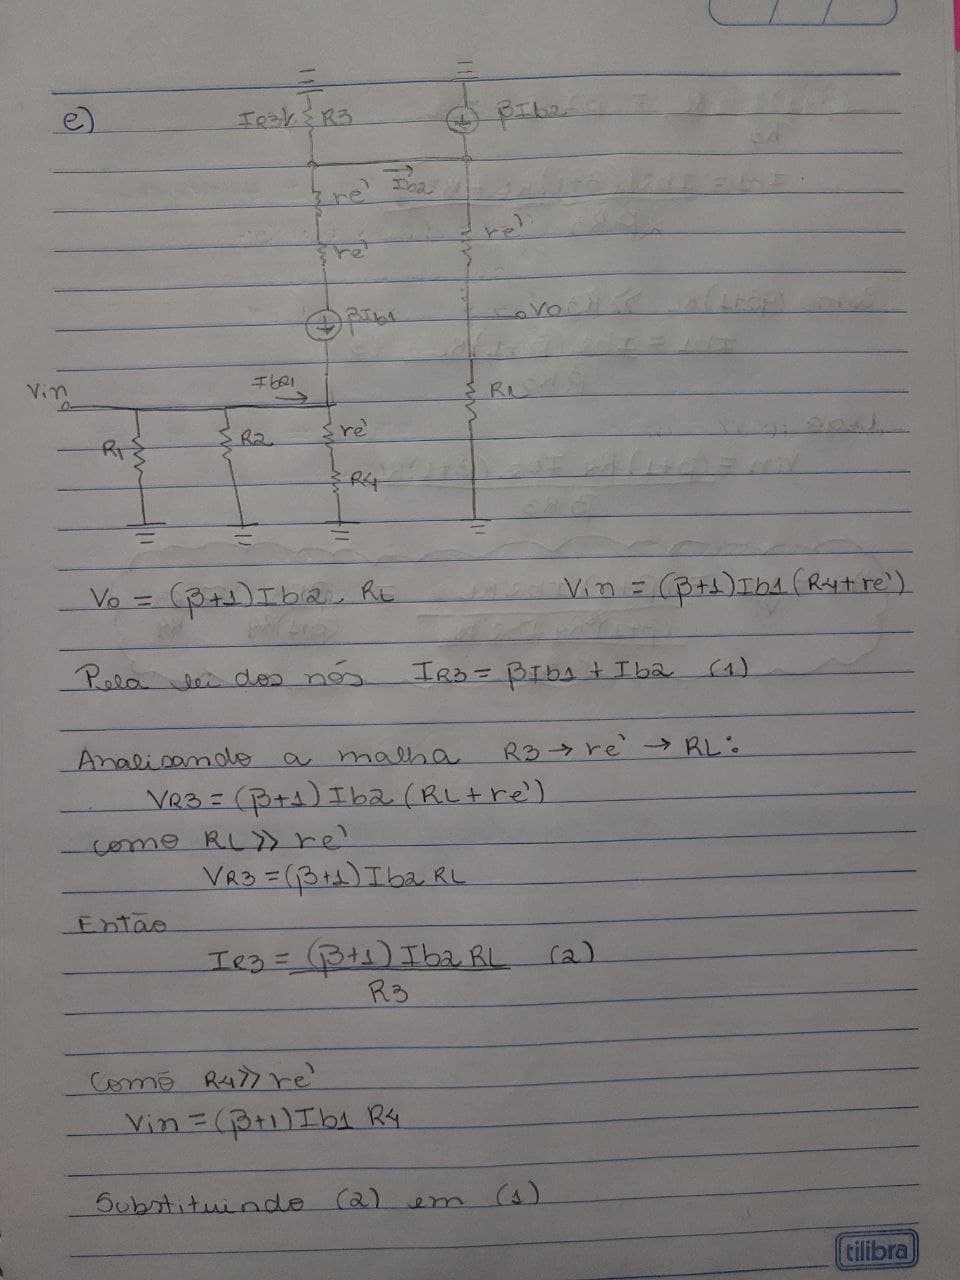 e)
IR3↓ R3
βIb2
Ib2
re'
re'
re'
βIb1
Vo
Vin
Ib1
RL
R1
R2
re'
R4
Vo = (β+1)Ib2. RL Vin = (β+1)Ib1(R4+re')
Pela lei dos nós IR3 = βIb1 + Ib2 (1)
Analisando a malha R3 → re' → RL:
VR3 = (β+1)Ib2(RL+re')
como RL >> re'
VR3 = (β+1)Ib2 RL
Então
IR3 = (β+1)Ib2 RL (2)
R3
Como R4 >> re'
Vin = (β+1)Ib1 R4
Substituindo (2) em (1)
tilibra